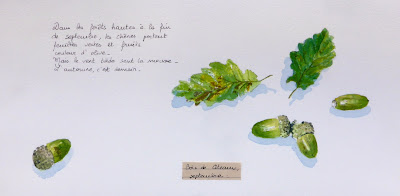 Dans les forêts hautes à la fin
de septembre, les chênes portent
feuilles vertes et fruits
couleur d'olive.
Mais le vent bleu sent la mousse.
L'automne, c'est demain.
Bois de
septembre.